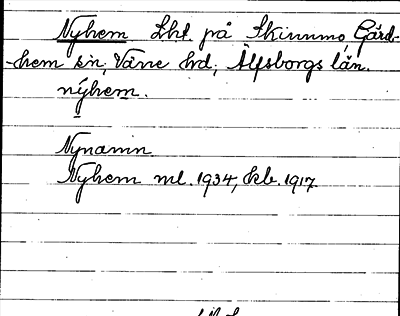 Nyhem Lht på Skinnmo, Gärd-
hem sn, Väne hd, Älfsborgs län.
nýhem.
Nynamn.
Nyhem ml. 1934, kb. 1917